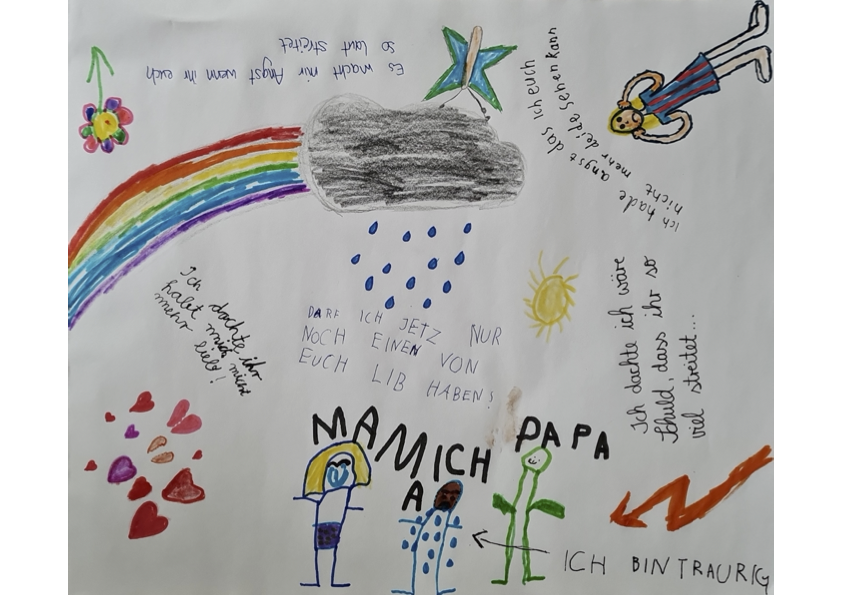 Es macht mir Angst wenn ihr euch
so laut streitet
Ich hade angst das ich euch
nicht mehr deide sehen kann
Ich dachte ihr
habt mich nicht
mehr lieb!
DARF ICH JETZ NUR
NOCH EINEN VON
EUCH LIB HABEN?
Ich dachte ich wäre
Schuld, dass ihr so
viel streitet...
MAMA
ICH
PAPA
ICH BIN TRAURIG